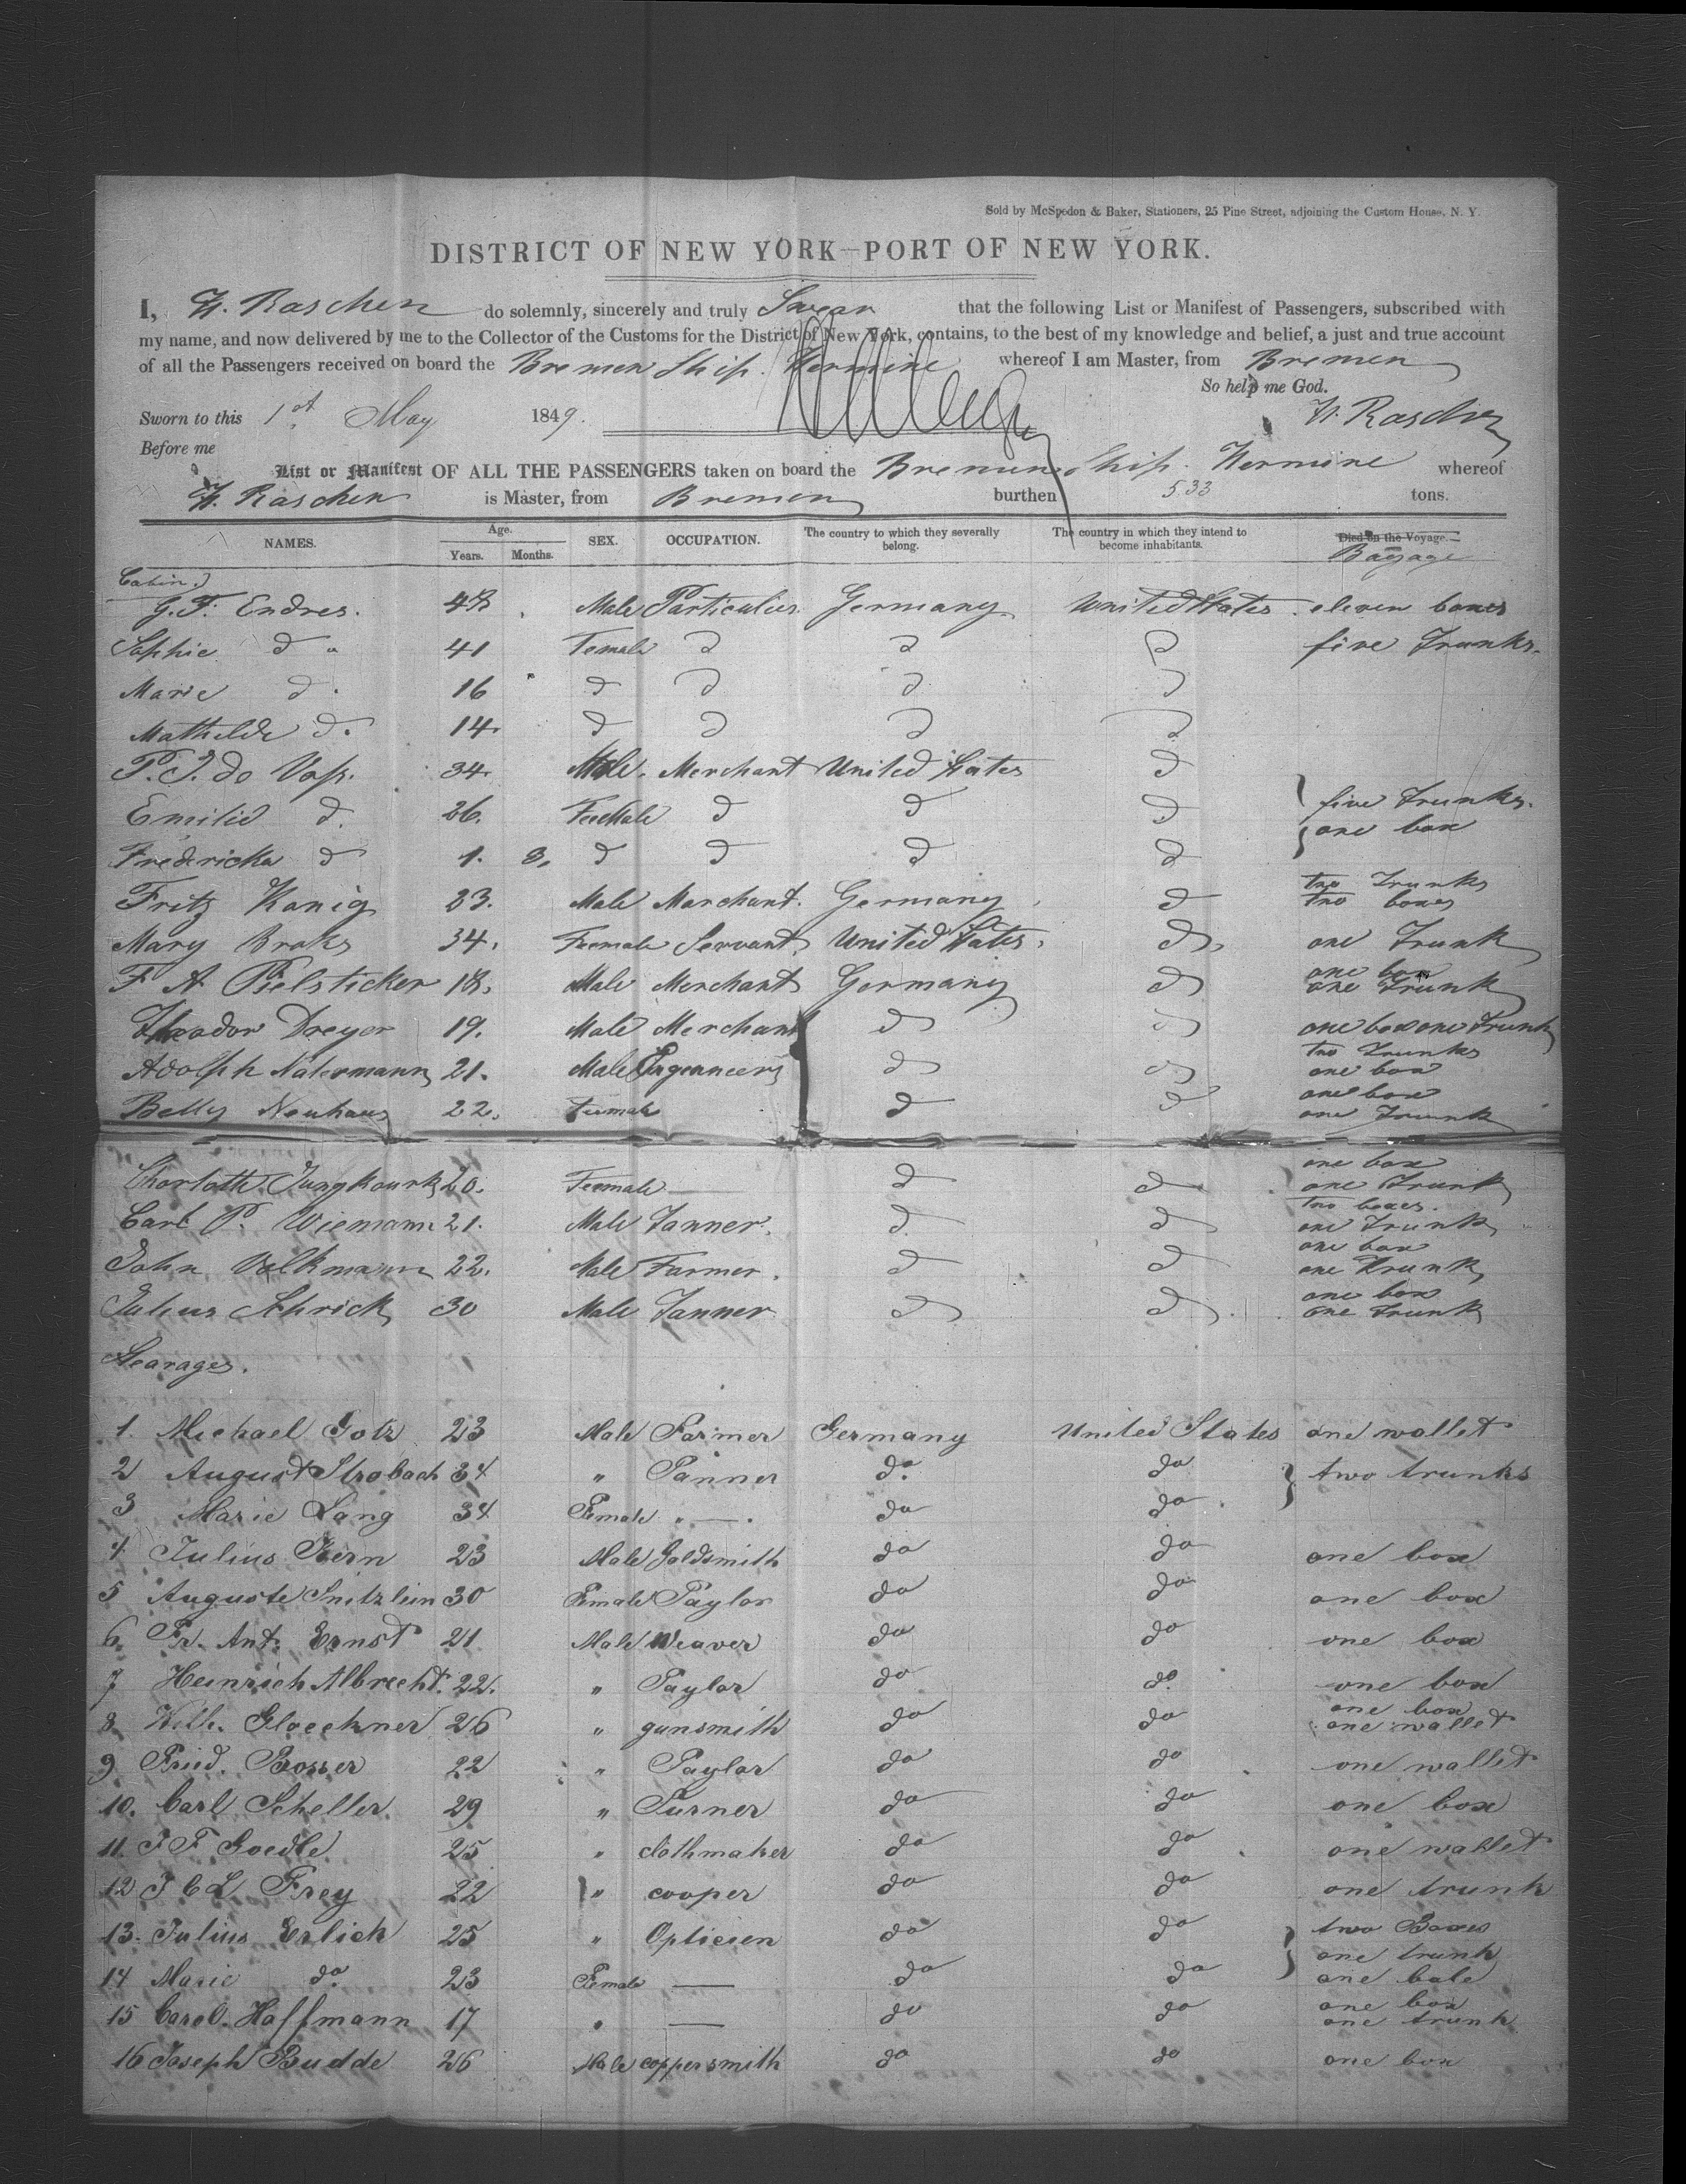 Sold by McSpedon & Baker, Stationers, 25 Pine Street, adjoining the Custom House, N. Y.
DISTRICT OF NEW YORK—PORT OF NEW YORK.
I, H. Raschen do solemnly, sincerely and truly Swear that the following List or Manifest of Passengers, subscribed with
my name, and now delivered by me to the Collector of the Customs for the District of New York, contains, to the best of my knowledge and belief, a just and true account
of all the Passengers received on board the Bremen Ship. Hermine whereof I am Master, from Bremen
So help me God.
Sworn to this 1st May 1849. H. Raschen
Before me
List or Manifest OF ALL THE PASSENGERS taken on board the Bremen Ship. Hermine whereof
H. Raschen is Master, from Bremen burthen 533 tons.
NAMES. Age. Years. Months. SEX. OCCUPATION. The country to which they severally belong. The country in which they intend to become inhabitants. Died on the Voyage.
Bagage
Cabin.
G. F. Endres. 48 Male Particulier Germany United States eleven boxes
Sophie d " 41 Female d d d five Trunks.
Marie d. 16 d d d d
Mathilde d. 14. d d d d
P. J. do Vass. 34. Male. Merchant United States d
Emilie d. 26. Female d d d five Trunks.
one box
Fredericka d 1. 8. d d d d
Fritz Konig 23. Male Merchant. Germany d two Trunks
two boxes
Mary Broks 34. Female Servant United States. d one Trunk
F A Pielsticker 18. Male Merchant Germany d one box
one Trunk
Theodor Dreyer 19. Male Merchant d d one box one Trunk
Adolph Natermann 21. Male Ingeneer d d two Trunks
one box
Betty Neuhaus 22. Female d d one box
one Trunk
Charlotte 20. Female — d d one box
one Trunk
Carl P. Wiemann 21. Male Tanner. d d two boxes.
one Trunk
John Volkmann 22. Male Farmer. d d one box
one Trunk
Julius Schrick 30 Male Tanner d d one box
one Trunk
Stearages.
1. Michael Gotz 23 Male Farmer Germany United States one wallet
2 August Strobach 34 " Tanner do. do } two trunks
3 Marie Lang 34 Female " — . do do.
4 Julius Kern 23 Male Goldsmith do do one box
5 Auguste Snitzlein 30 Female Taylor do do one box
6. Fr. Ant. Ernst 21 Male Weaver do do one box
7 Heinrich Albrecht. 22. " Taylor do do. one box
8 Wilh. Gloeckner 26 " gunsmith do do one box
one wallet
9 Fried. Bosser 22 " Taylor do do one wallet
10. Carl Scheller. 29 " Turner do do one box
11. J F Goedle 25 " clothmaker do do one wallet
12 J C L Frey 22 " cooper do do one trunk
13. Julius Erlich 25 " Opticien do do } two Boxes
one trunk
14 Marie do. 23 Female — do do one bale
15 Carol. Hoffmann 17 " — do do one box
one trunk
16 Joseph Budde 26 Male coppersmith do do one box